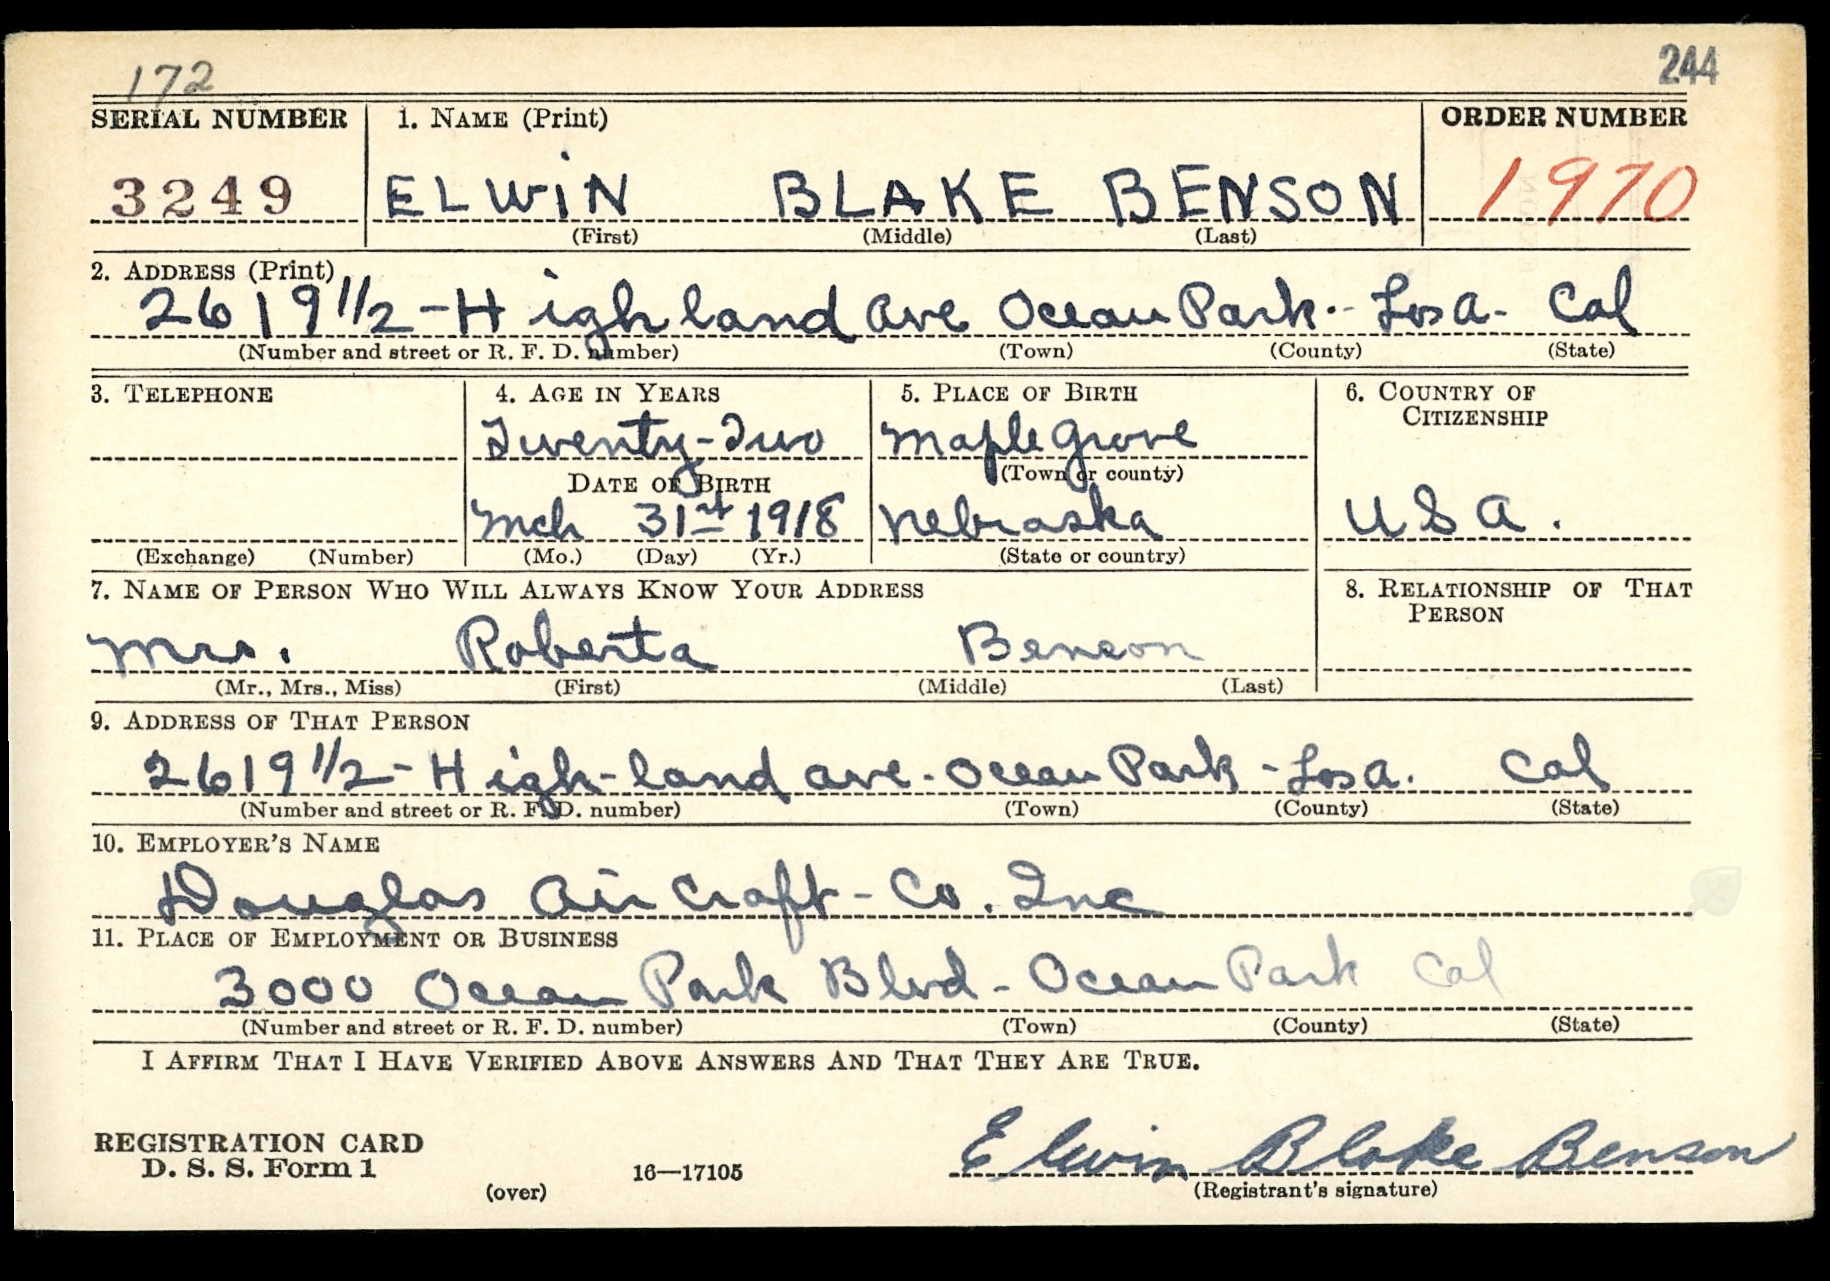 172
244
SERIAL NUMBER 1. NAME (Print) ORDER NUMBER
3249 ELWIN BLAKE BENSON 1970
(First) (Middle) (Last)
2. ADDRESS (Print)
2619 1/2 - Highland Ave Ocean Park - Los A - Cal
(Number and street or R. F. D. number) (Town) (County) (State)
3. TELEPHONE 4. AGE IN YEARS 5. PLACE OF BIRTH 6. COUNTRY OF CITIZENSHIP
Twenty-Two Maple Grove
DATE OF BIRTH (Town or county)
Mch 31st 1918 Nebraska U S A.
(Exchange) (Number) (Mo.) (Day) (Yr.) (State or country)
7. NAME OF PERSON WHO WILL ALWAYS KNOW YOUR ADDRESS 8. RELATIONSHIP OF THAT PERSON
Mrs. Roberta Benson
(Mr., Mrs., Miss) (First) (Middle) (Last)
9. ADDRESS OF THAT PERSON
2619 1/2 - High-land ave - Ocean Park - Los A. Cal
(Number and street or R. F. D. number) (Town) (County) (State)
10. EMPLOYER'S NAME
Douglas Air Craft - Co. Inc
11. PLACE OF EMPLOYMENT OR BUSINESS
3000 Ocean Park Blvd - Ocean Park Cal
(Number and street or R. F. D. number) (Town) (County) (State)
I AFFIRM THAT I HAVE VERIFIED ABOVE ANSWERS AND THAT THEY ARE TRUE.
REGISTRATION CARD
D. S. S. Form 1 16—17105 Elwin Blake Benson
(over) (Registrant's signature)